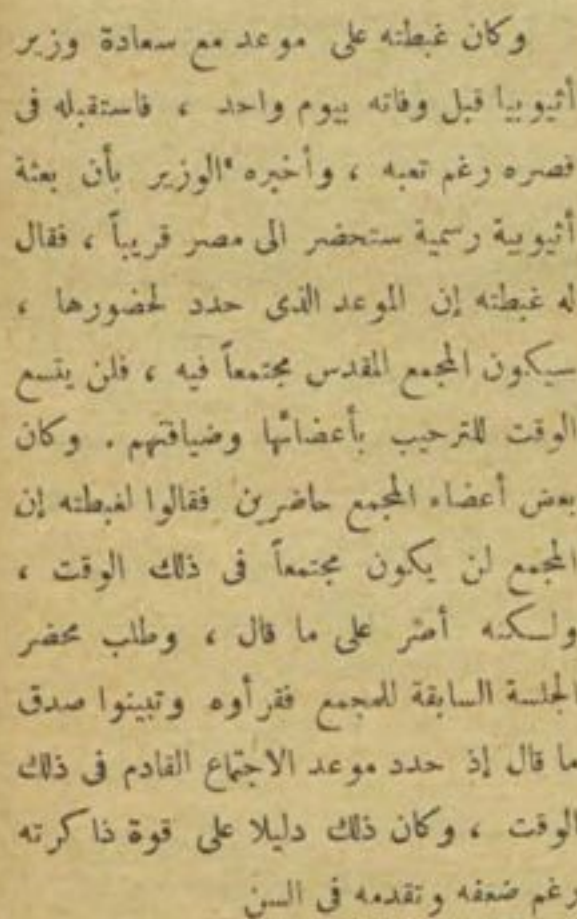 وكان غبطته على موعد مع سعادة وزير
أثيوبيا قبل وفاته بيوم واحد ، فاستقبله فى
قصره رغم تعبه ، وأخبره الوزير بأن بعثة
أثيوبية رسمية ستحضر الى مصر قريباً ، فقال
له غبطته إن الموعد الذى حدد لحضورها ،
سيكون المجمع المقدس مجتمعاً فيه ، فلن يتسع
الوقت للترحيب بأعضائها وضيافتهم . وكان
بعض أعضاء المجمع حاضرين فقالوا لغبطته إن
المجمع لن يكون مجتمعاً فى ذلك الوقت ،
ولكنه أصر على ما قال ، وطلب محضر
الجلسة السابقة للمجمع فقرأوه وتبينوا صدق
ما قال إذ حدد موعد الاجتماع القادم فى ذلك
الوقت ، وكان ذلك دليلا على قوة ذاكرته
رغم ضعفه وتقدمه فى السن